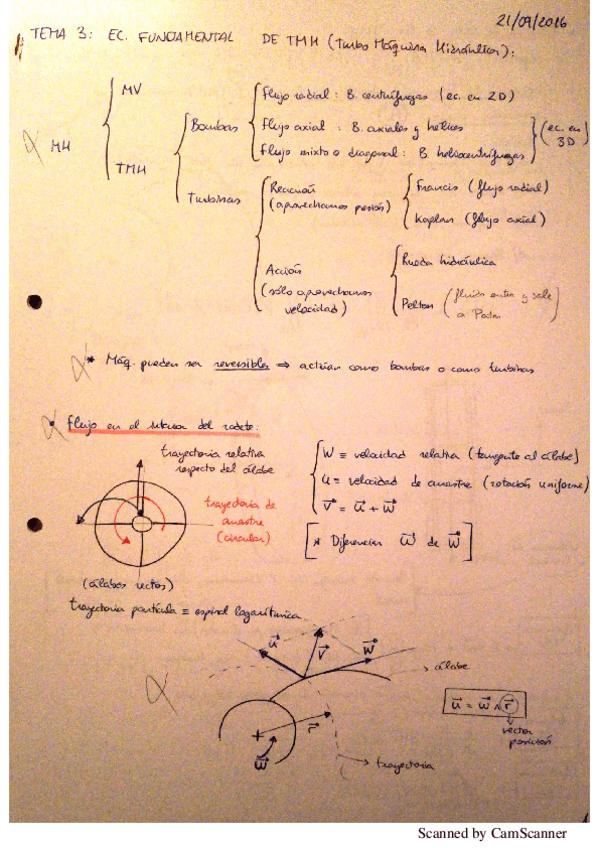 21/09/2016
TEMA 3: EC. FUNDAMENTAL DE TMH (Turbo Máquina Hidráulica):
MH
MV
TMH
Bombas
Flujo radial: B. centrífugas (ec. en 2D)
Flujo axial: B. axiales y hélices
Flujo mixto o diagonal: B. heliocentrífugas
(ec. en 3D)
Turbinas
Reacción
(aprovechamos presión)
Francis (flujo radial)
Kaplan (flujo axial)
Acción
(sólo aprovechamos
velocidad)
Rueda hidráulica
Pelton (fluido entra y sale
a Patm)
* Máq. pueden ser reversibles ⇒ actúan como bombas o como turbinas
* Flujo en el interior del rodete:
trayectoria relativa
respecto del álabe
trayectoria de
arrastre
(circular)
(álabes rectos)
trayectoria partícula ≡ espiral logarítmica
W ≡ velocidad relativa (tangente al álabe)
u ≡ velocidad de arrastre (rotación uniforme)
V⃗ = u⃗ + w⃗
[* Diferenciar ω⃗ de w⃗]
u⃗
V⃗
w⃗
álabe
r⃗
ω⃗
trayectoria
u⃗ = ω⃗ ∧ r⃗
vector
posición
Scanned by CamScanner